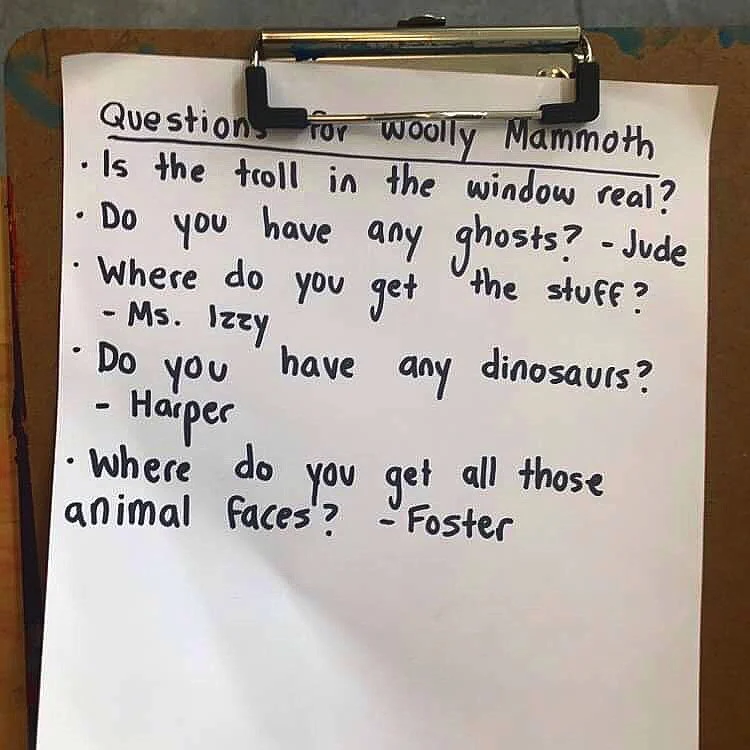 Questions for Woolly Mammoth
• Is the troll in the window real?
• Do you have any ghosts? - Jude
• Where do you get the stuff?
- Ms. Izzy
• Do you have any dinosaurs?
- Harper
• Where do you get all those
animal faces? - Foster